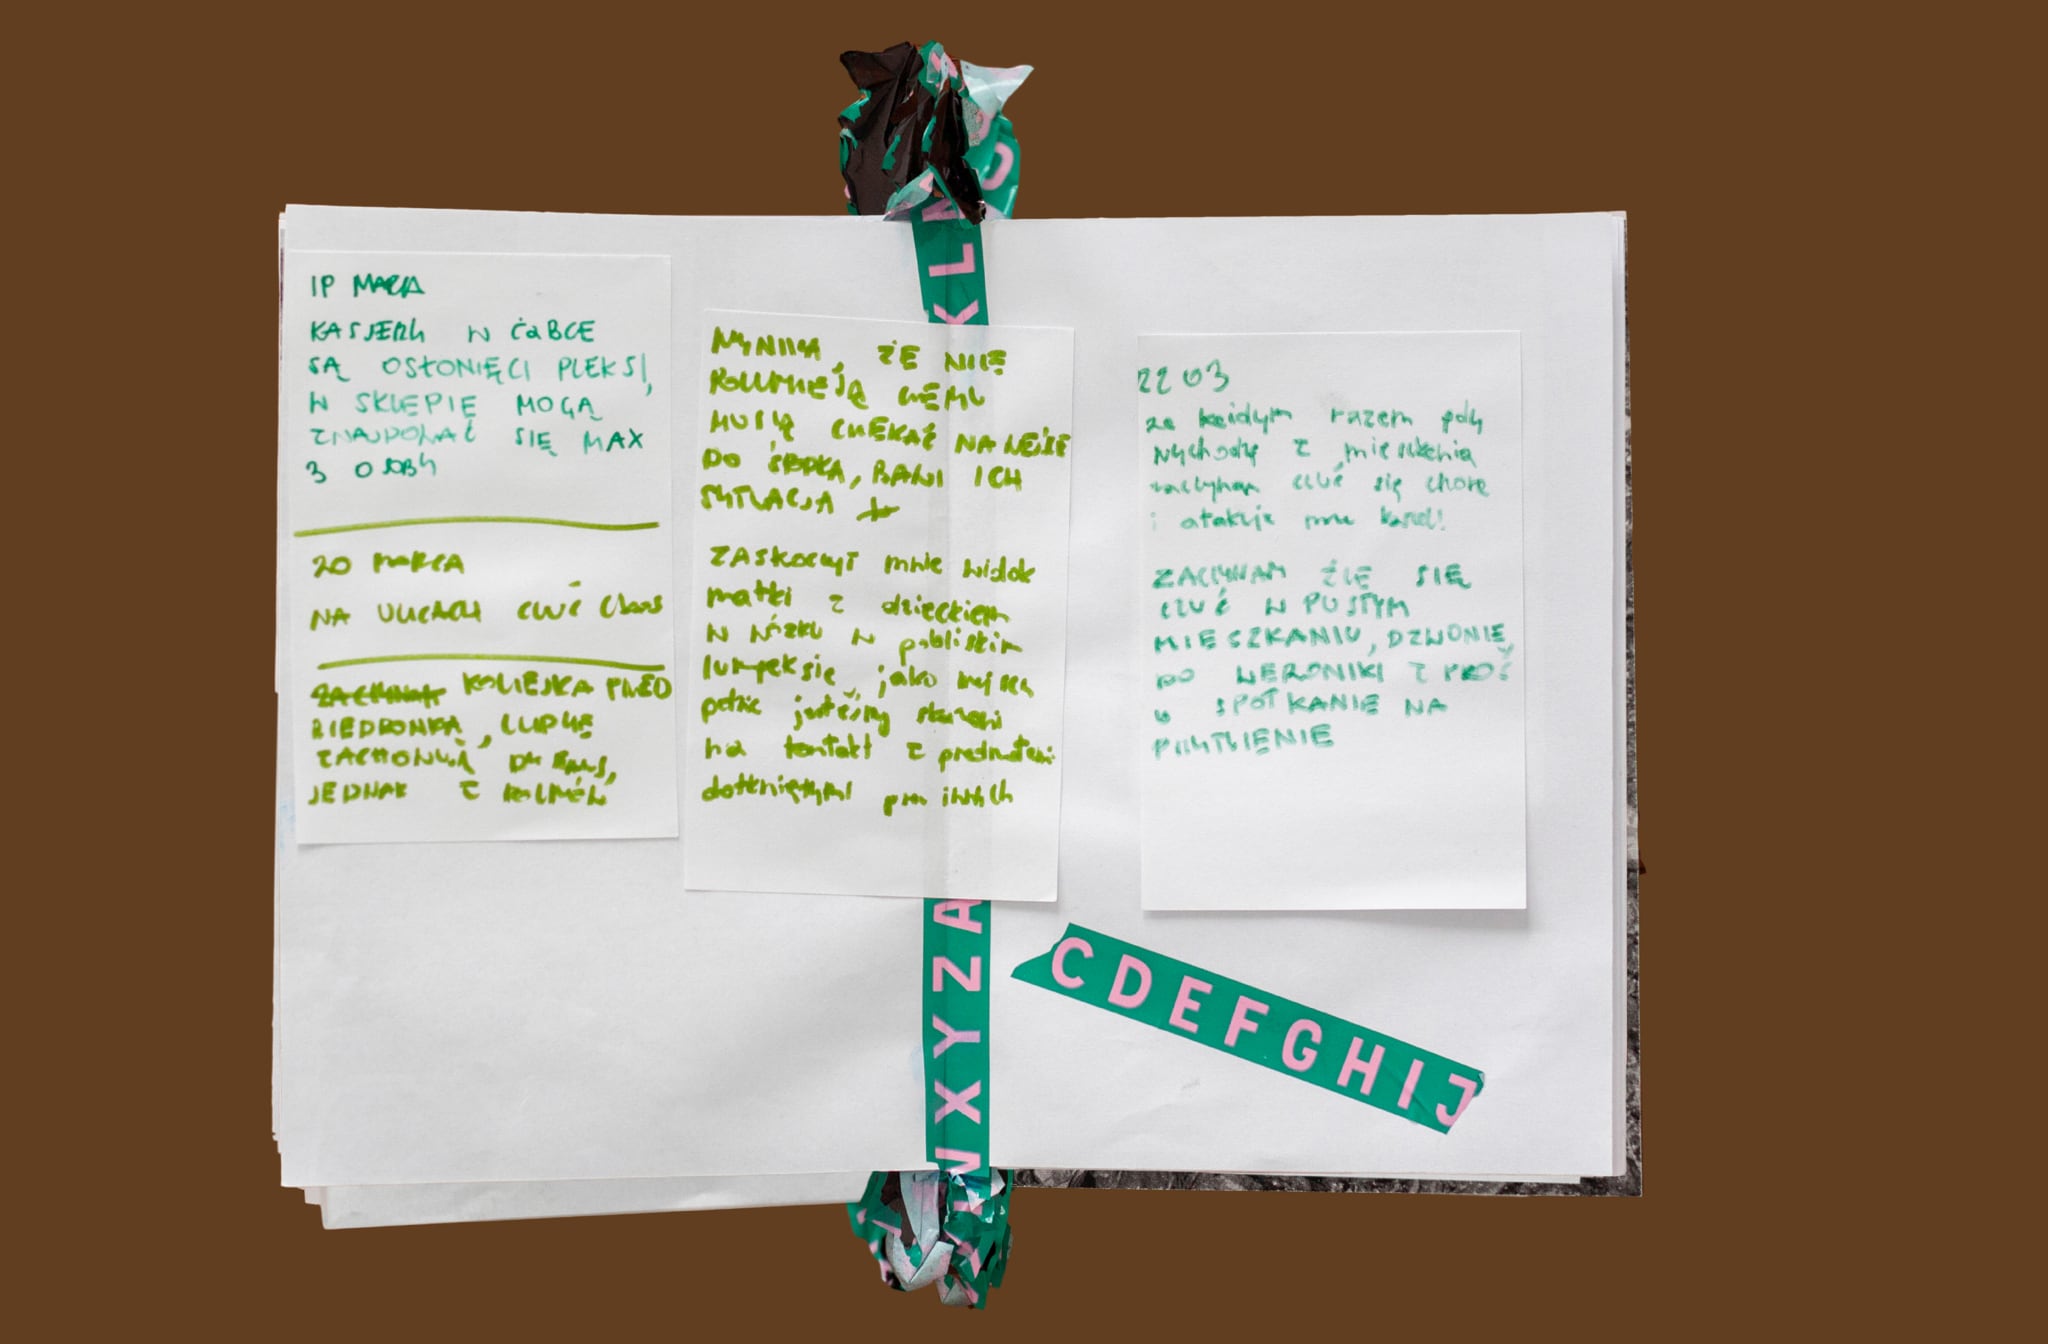 19 MARCA
KASJERZY W ŻABCE
SĄ OSŁONIĘCI PLEKSI,
W SKLEPIE MOGĄ
ZNAJDOWAĆ SIĘ MAX
3 OSOBY
20 MARCA
NA ULICACH CZUĆ chaos
KOLEJKA PRZED
BIEDRONKĄ, LUDZIE
ZACHOWUJĄ DYSTANS,
JEDNAK Z ROZMÓW
WYNIKA, ŻE NIE
ROZUMIEJĄ CZEMU
MUSZĄ CZEKAĆ NA WEJŚCIE
DO ŚRODKA, BAWI ICH
SYTUACJA
ZASKOCZYł mnie widok
matki z dzieckiem
w wózku w pobliskim
lumpeksie, jako miejscu
gdzie jesteśmy skazani
na kontakt z przedmiotami
dotkniętymi przez innych
22 03
za każdym razem gdy
wychodzę z mieszkania
zaczynam czuć się chora
i atakuje mnie kaszel!
ZACZYNAM ŹLE SIĘ
CZUĆ W PUSTYM
MIESZKANIU, DZWONIĘ
DO WERONIKI Z PROŚ
O SPOTKANIE NA
KL
WXYZA
CDEFGHIJ